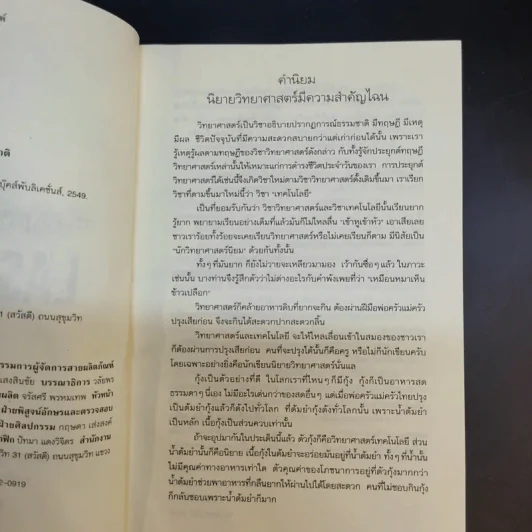 พ์
ติ
บุ๊คส์พับลิเคชั่นส์, 2549.
1 (สวัสดี) ถนนสุขุมวิท
รรมการผู้จัดการสายผลิตภัณฑ์
แสงสินชัย บรรณาธิการ วลัยพร
ผลิต จรัสศรี พรหมเทพ หัวหน้า
ฝ่ายพิสูจน์อักษรและตรวจสอบ
ฝ่ายศิลปกรรม กฤษดา เส่งลงค์
ฟิก ปัทมา แดงวิจิตร สำนักงาน
วิท 31 (สวัสดี) ถนนสุขุมวิท แขวง
2-0919
คำนิยม
นิยายวิทยาศาสตร์มีความสำคัญไฉน
วิทยาศาสตร์เป็นวิชาอธิบายปรากฏการณ์ธรรมชาติ มีทฤษฎี มีเหตุ
มีผล ชีวิตปัจจุบันที่มีความสะดวกสบายกว่าแต่เก่าก่อนได้นั้น เพราะเรา
รู้เหตุรู้ผลตามทฤษฎีของวิชาวิทยาศาสตร์ดังกล่าว กับทั้งรู้จักประยุกต์ทฤษฎี
วิทยาศาสตร์เหล่านั้นให้เหมาะแก่การดำรงชีวิตประจำวันของเรา การประยุกต์
วิทยาศาสตร์ได้เช่นนี้จึงเกิดวิชาใหม่ตามวิชาวิทยาศาสตร์ดั้งเดิมขึ้นมา เราเรียก
วิชาที่ตามขึ้นมาใหม่นี้ว่า วิชา "เทคโนโลยี"
เป็นที่ยอมรับกันว่า วิชาวิทยาศาสตร์และวิชาเทคโนโลยีนั้นเรียนยาก
รู้ยาก พยายามเรียนอย่างเดิมที่แล้วมันก็ไม่ไหลลื่น "เข้าหูเข้าหัว" เอาเสียเลย
ชาวเราร้อยทั้งร้อยจะเคยเรียนวิทยาศาสตร์หรือไม่เคยเรียนก็ตาม มีนิสัยเป็น
"นักวิทยาศาสตร์นิยม" ด้วยกันทั้งนั้น
ทั้งๆ ที่มันยาก ก็ยังไม่วายจะเหลียวมามอง เว้ากันซื่อๆ แล้ว ในภาวะ
เช่นนั้น บางท่านจึงรู้สึกตัวว่าไม่ต่างอะไรกับคำพังเพยที่ว่า "เหมือนหมาเห็น
ข้าวเปลือก"
วิทยาศาสตร์ก็คล้ายอาหารดิบที่ยากจะกิน ต้องผ่านฝีมือพ่อครัวแม่ครัว
ปรุงเสียก่อน จึงจะกินได้สะดวกปากสะดวกลิ้น
วิทยาศาสตร์และเทคโนโลยี จะให้ไหลเลื่อนเข้าในสมองของชาวเรา
ก็ต้องผ่านการปรุงเสียก่อน คนที่จะปรุงได้นั้นก็คือครู หรือไม่ก็นักเขียนครับ
โดยเฉพาะอย่างยิ่งคือนักเขียนนิยายวิทยาศาสตร์นั่นแล
กุ้งเป็นตัวอย่างที่ดี ในโลกเราที่ไหนๆ ก็มีกุ้ง กุ้งก็เป็นอาหารสด
ธรรมดาๆ นี่เอง ไม่มีอะไรเด่นกว่าของสดอื่นๆ แต่เมื่อพ่อครัวแม่ครัวไทยปรุง
เป็นต้มยำกุ้งแล้วก็ดังไปทั่วโลก ที่ต้มยำกุ้งดังทั่วโลกนั้น เพราะน้ำต้มยำ
เป็นหลัก เนื้อกุ้งเป็นส่วนควบเท่านั้น
ถ้าจะอุปมากันในประเด็นนี้แล้ว ตัวกุ้งก็คือวิทยาศาสตร์เทคโนโลยี ส่วน
น้ำต้มยำนั้นก็คือนิยาย เนื้อกุ้งในต้มยำจะอร่อยมันอยู่ที่น้ำต้มยำ ทั้งๆ ที่น้ำนั้น
ไม่มีคุณค่าทางอาหารเท่าใด ตัวคุณค่าของโภชนาการอยู่ที่ตัวกุ้งมากกว่า
น้ำต้มยำช่วยพาอาหารที่กลืนยากให้ผ่านไปได้โดยสะดวก คนที่ไม่ชอบกินกุ้ง
ก็กลับชอบเพราะน้ำต้มยำก็มาก